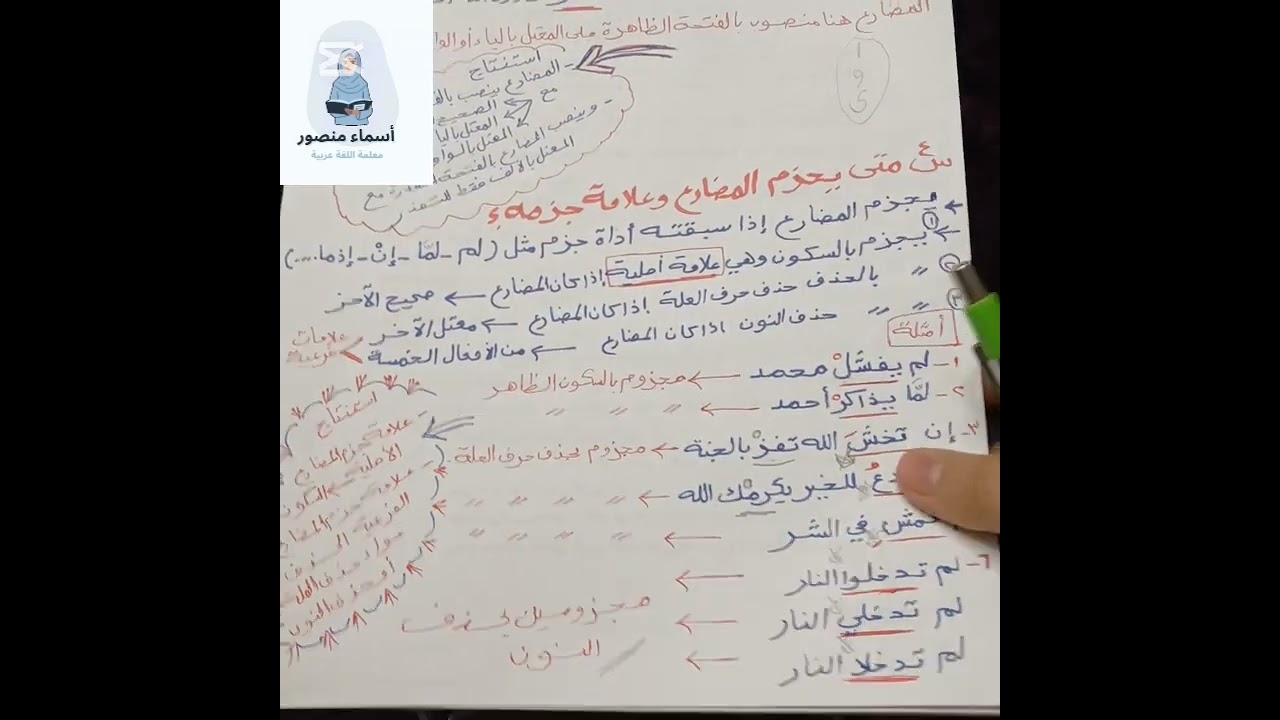 المضارع هنا منصوب بالفتحة الظاهرة على المعتل بالياء أو الواو
ا
و
ى
استنتاج
- المضارع ينصب بالفتحة
مع
الصحيح
المعتل بالياء
المعتل بالواو
- وينصب المضارع بالفتحة المقدرة مع
المعتل بالألف فقط للتعذر
أسماء منصور
معلمة اللغة العربية
س٤ متى يجزم المضارع وعلامة جزمه؟
← يجزم المضارع إذا سبقته أداة جزم مثل (لم - لمَّا - إنْ - إذما....)
← ① يجزم بالسكون وهي علامة أصلية إذا كان المضارع ← صحيح الآخر
② 〃 بالحذف حذف حرف العلة إذا كان المضارع ← معتل الآخر
③ 〃 〃 حذف النون إذا كان المضارع ← من الأفعال الخمسة
علامات
فرعية
أمثلة
١- لم يفشلْ محمد ← مجزوم بالسكون الظاهر
٢- لمَّا يذاكرْ أحمد ← 〃 〃 〃
٣- إن تخشَ الله تفزْ بالجنة ← مجزوم بحذف حرف العلة
دعُ للخير يكرمْك الله ← 〃 〃 〃 〃
تمشِ في الشر ← 〃 〃 〃 〃
٦- لم تدخلوا النار ←
لم تدخلي النار ← مجزومين بحذف
لم تدخلا النار ← النون
استنتاج
- علامة جزم المضارع
الأصلية السكون
- علامة جزم المضارع
الفرعية الحذف
سواء حذف العلة
أو حذف النون